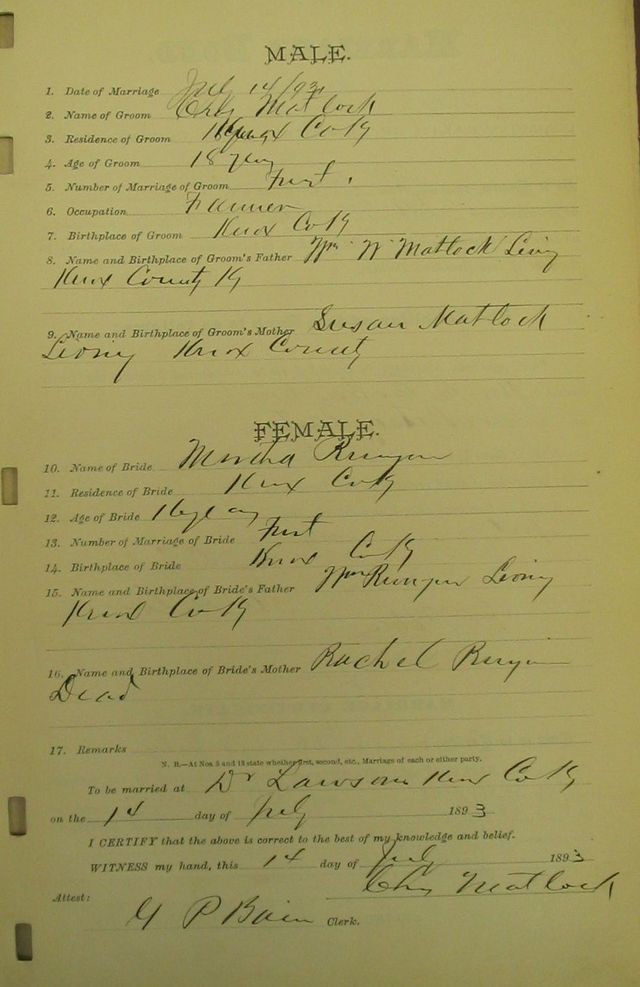 MALE.
1. Date of Marriage July 14/93
2. Name of Groom Chs Matlock
3. Residence of Groom Knox Co Ky
4. Age of Groom 18 years
5. Number of Marriage of Groom First.
6. Occupation Farmer
7. Birthplace of Groom Knox Co Ky
8. Name and Birthplace of Groom's Father Wm W Matlock Living
Knox County Ky
9. Name and Birthplace of Groom's Mother Susan Matlock
Living Knox County
FEMALE.
10. Name of Bride Martha Runyon
11. Residence of Bride Knox Co Ky
12. Age of Bride
13. Number of Marriage of Bride First
14. Birthplace of Bride Knox Co Ky
15. Name and Birthplace of Bride's Father Wm Runyon Living
Knox Co Ky
16. Name and Birthplace of Bride's Mother Rachel Runyon
Dead
17. Remarks
N. B.—At Nos 5 and 13 state whether first, second, etc., Marriage of each or either party.
To be married at Dr Lawsons Knox Co Ky
on the 14 day of July 1893
I CERTIFY that the above is correct to the best of my knowledge and belief.
WITNESS my hand, this 14 day of July 1893
Chs Matlock
Attest:
G P Bain Clerk.